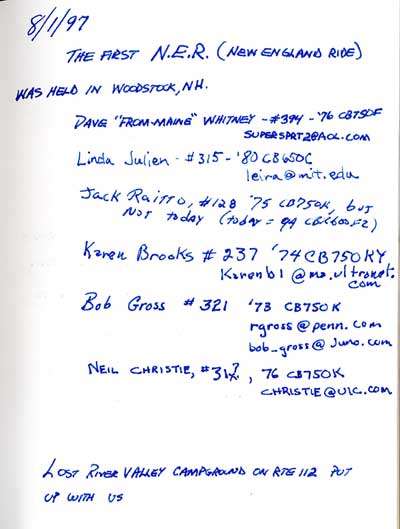 8/1/97
THE FIRST N.E.R. (NEW ENGLAND RIDE)
WAS HELD IN WOODSTOCK, NH.
DAVE "FROM-MAINE" WHITNEY - #394 - '76 CB750F
SUPERSPRT2@AOL.COM
Linda Julien - #315 - '80 CB650C
leira@mit.edu
Jack Raitto, #128 '75 CB750K, but
NOT today (today = 94 CBR600F2)
Karen Brooks # 237 '74 CB750 K4
Karenb1@ma.ultranet.
com
Bob Gross # 321 '73 CB750K
rgross@penn.com
bob_gross@Juno.com
NEIL CHRISTIE, , 76 CB750K
CHRISTIE@UIC.COM
LOST RIVER VALLEY CAMPGROUND ON RTE 112 PUT
UP WITH US